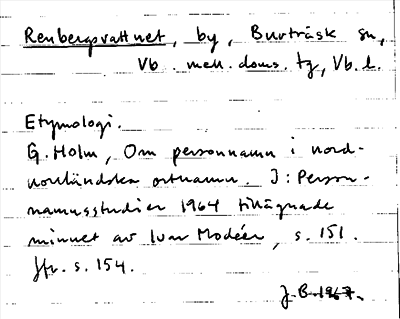 Renbergsvattnet, by, Burträsk sn,
Vb. mell. doms. tg, Vb. l.
Etymologi.
G. Holm, Om personnamn i nord-
norrländska ortnamn. I: Person-
namnsstudier 1964 tillägnade
minnet av Ivar Modéer, s. 151.
Jfr. s. 154.
J. B. 1967.